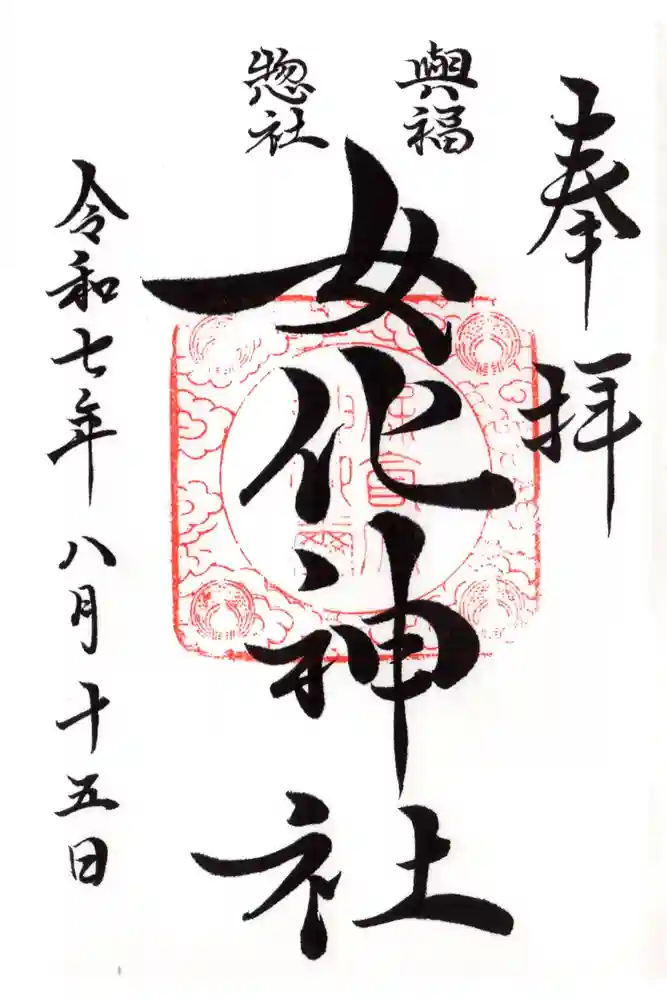 奉拝
與福
惣社
女化神社
令和七年八月十五日